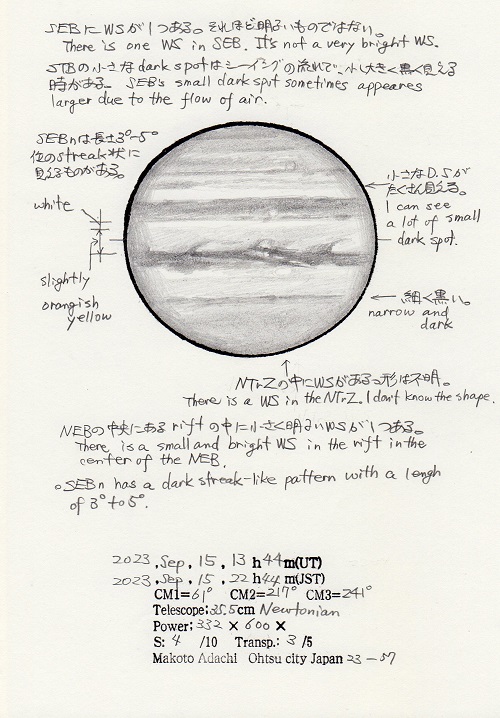 SEBにWSが1つある。それほど明るいものではない。
There is one WS in SEB. It's not a very bright WS.
STBの小さなdark spotはシーイングの流れで、小し大きく黒く見える
時がある。 SEB's small dark spot sometimes appeares
larger due to the flow of air.
SEBnは長さ3°~5°
位のstreak状に
見えるものがある。
white
slightly
orangish
yellow
小さなD.Sが
たくさん見える。
I can see
a lot of small
dark spot.
細く黒い。
narrow and
dark
NTrZの中にWSがあるっ形は不明。
There is a WS in the NTrZ. I don't know the shape.
NEBの中央にあるriftの中に小さく明るいWSが1つある。
There is a small and bright WS in the rift in the
center of the NEB.
○SEBn has a dark streak-like pattern with a lengh
of 3° to 5°.
2023, Sep, 15, 13 h 44m(UT)
2023, Sep, 15, 22 h 44m(JST)
CM1=61° CM2=217° CM3=241°
Telescope; 35.5cm Newtonian
Power; 332 × 600 ×
S: 4 /10 Transp.: 3 /5
Makoto Adachi Ohtsu city Japan 23-57